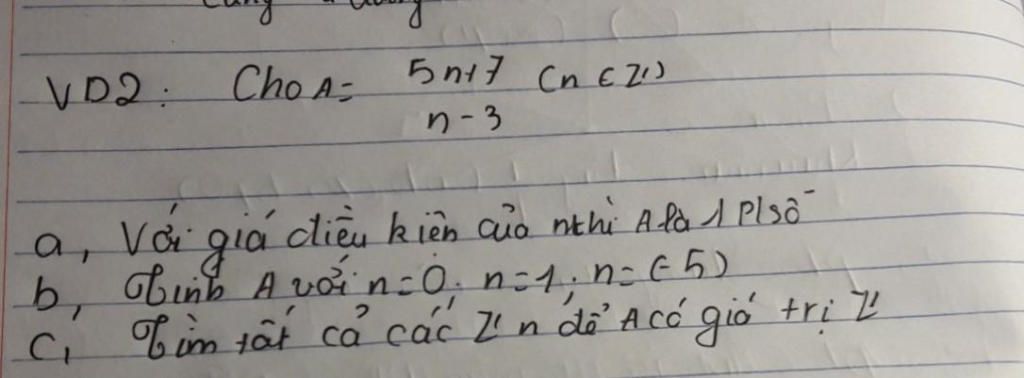 VD2: Cho A = 5n+7 (n ∈ Z)
n - 3
a, Với giá điều kiện của n thì A là 1 P/số
b, Tính A với n = 0; n = 1; n = (-5)
c, Tìm tất cả các Z n để A có giá trị Z